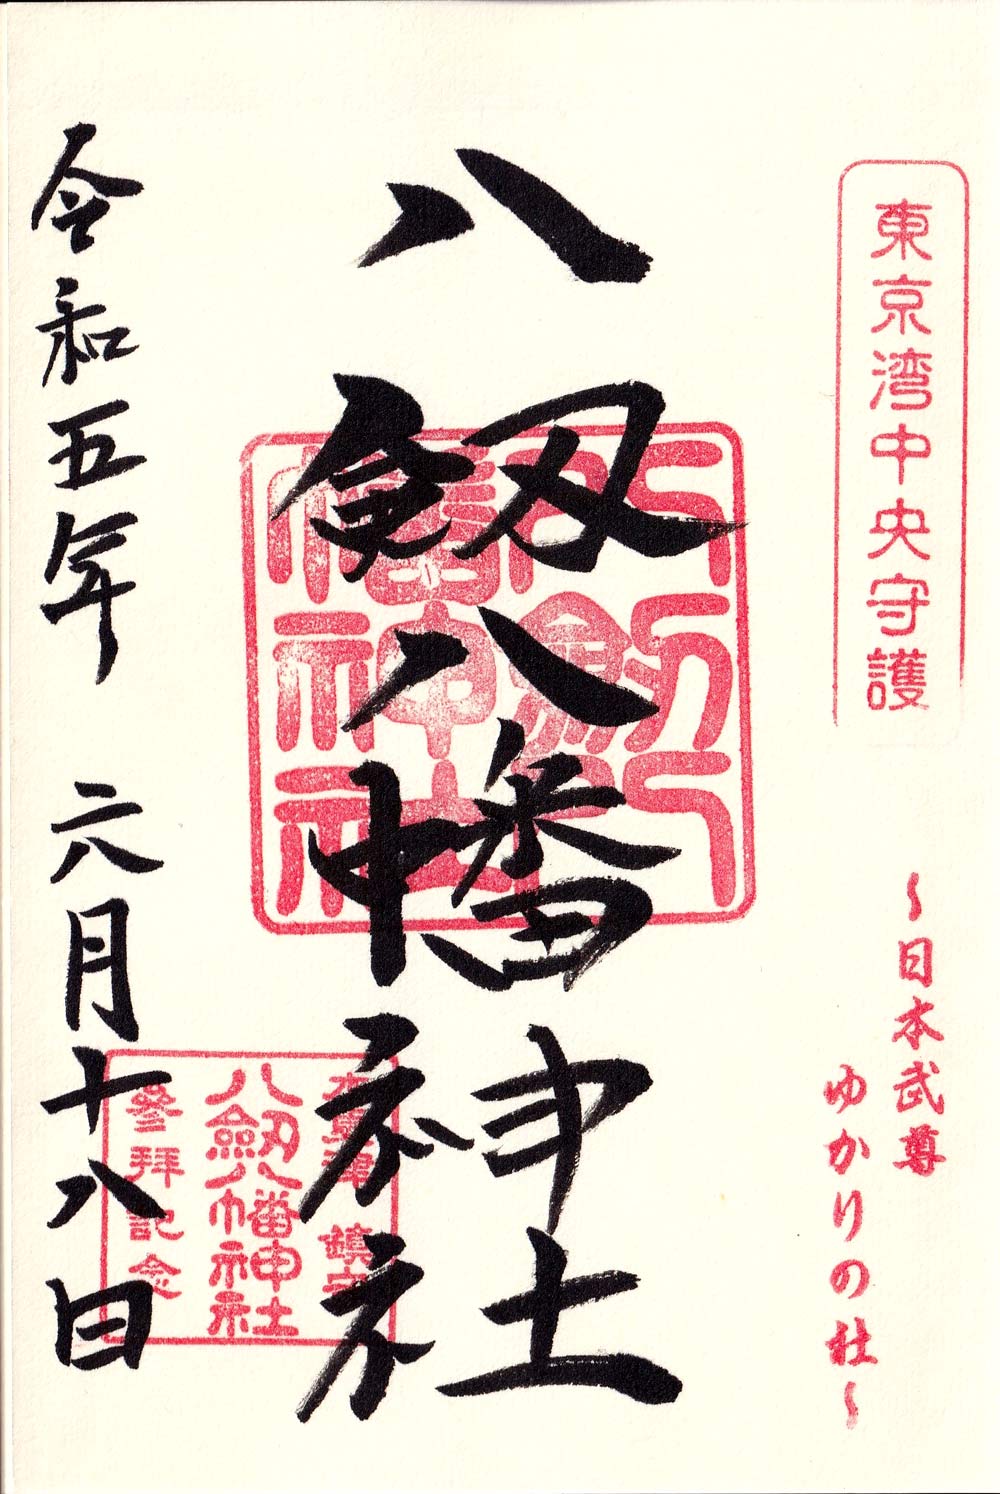 東京湾中央守護
～日本武尊
ゆかりの社～
八剱八幡神社
八剱八幡神社
木更津 鎮守
八剱八幡神社
參拝記念
令和五年 六月十八日